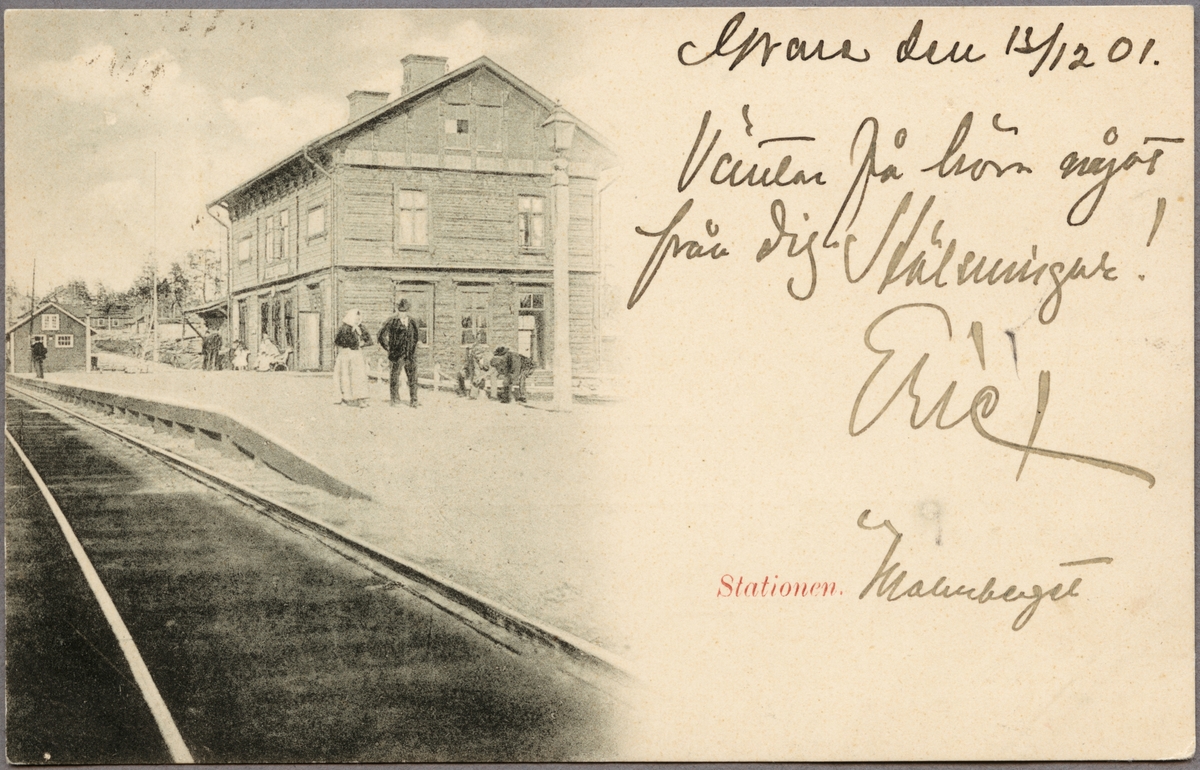 den 13/12 01.
Väntar på höra något
från dig. Hälsningar!
Eric
Stationen. Malmberget